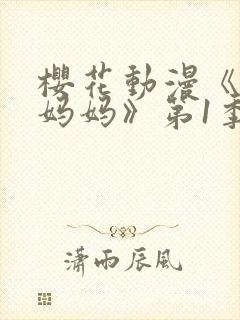 櫻花動漫《
妈妈》第1季
瀟雨辰風